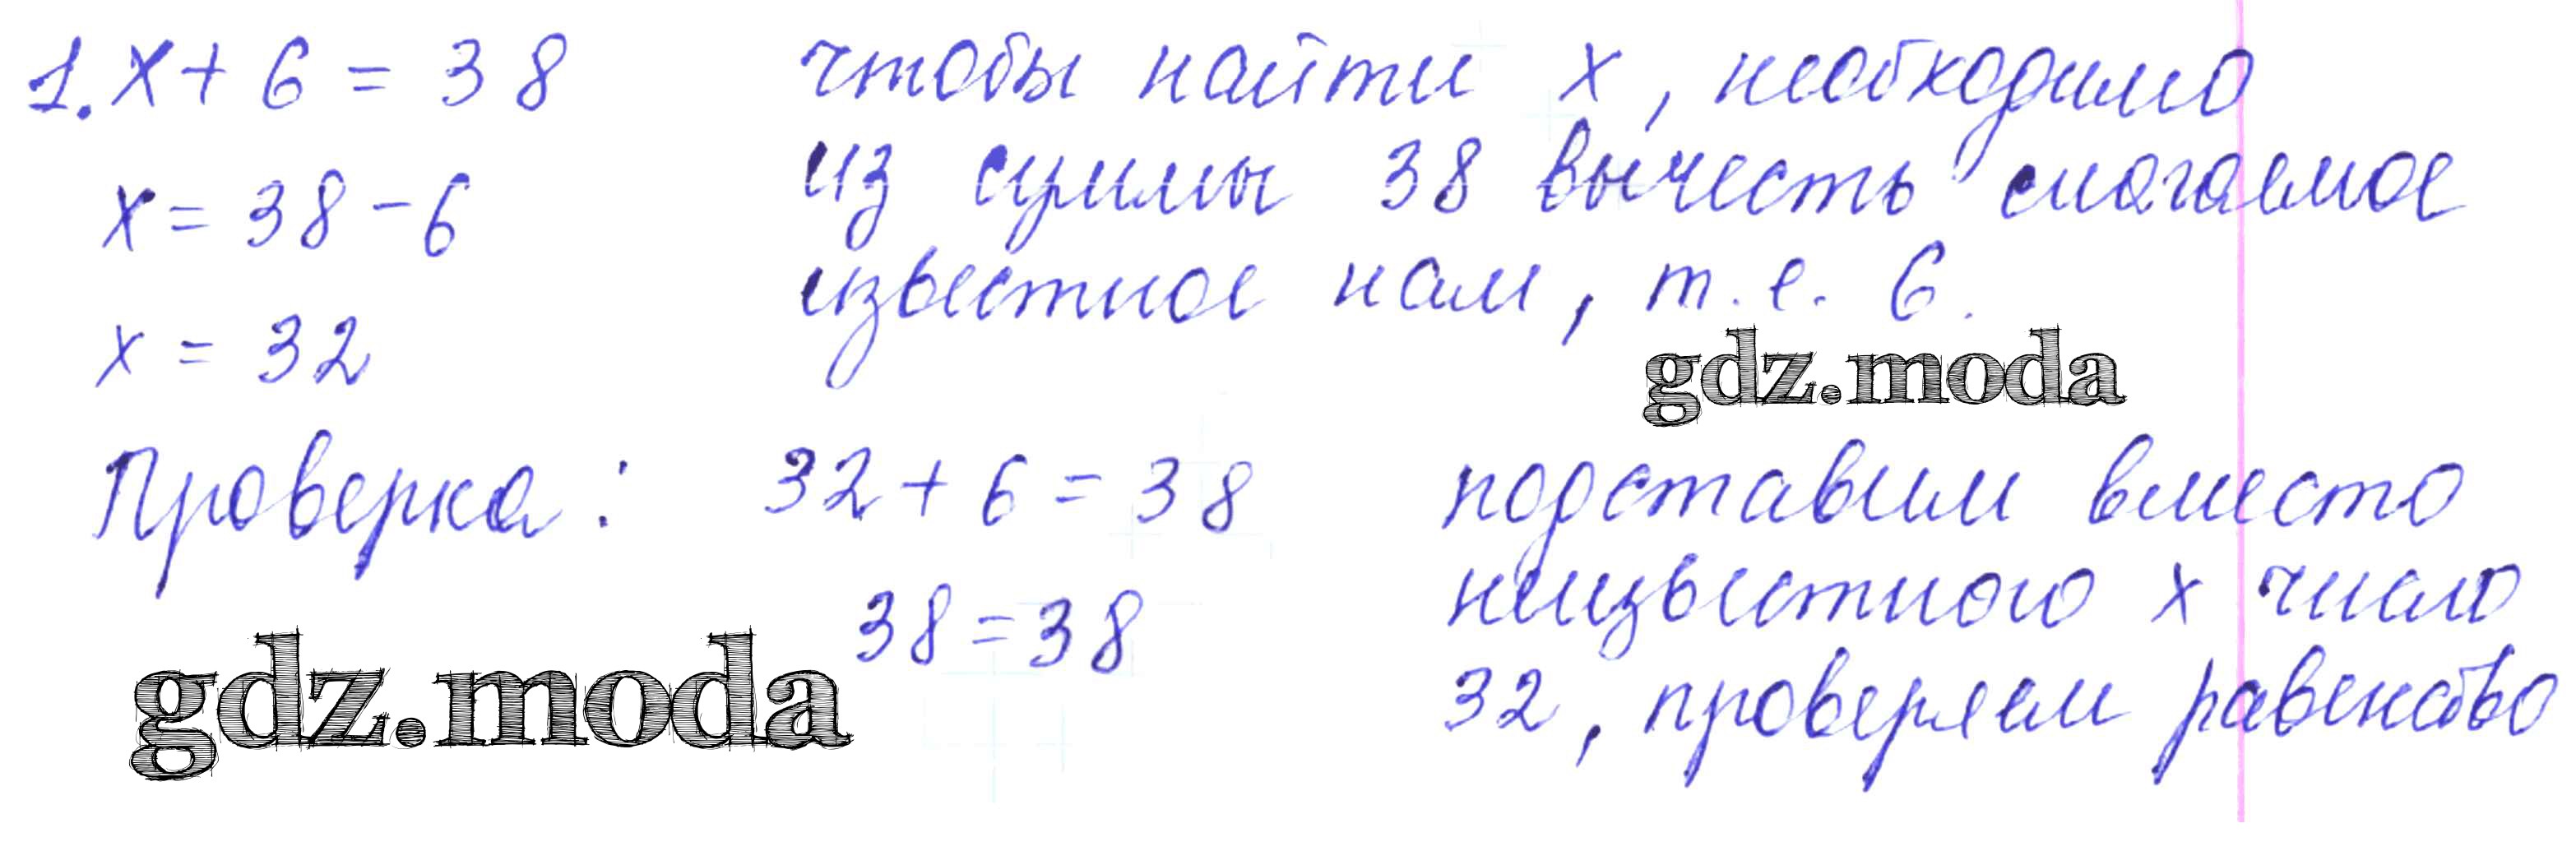 1. x + 6 = 38
x = 38 - 6
x = 32
чтобы найти x, необходимо
из суммы 38 вычесть слагаемое
известное нам, т.е. 6.
gdz.moda
Проверка: 32 + 6 = 38
38 = 38
подставим вместо
неизвестного x число
32, проверяем равенство
gdz.moda